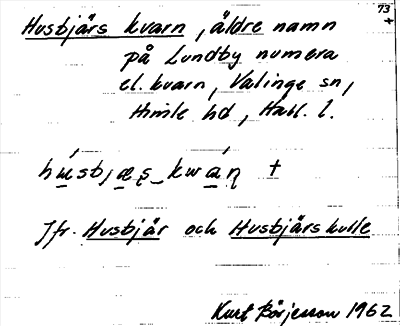 73
+
Husbjärs kvarn, äldre namn
på Lundby numera
el. kvarn, Valinge sn,
Himle hd, Hall. l.
hú̱sbjæ̱ʂ_kwa̱ɳ †
Jfr. Husbjär och Husbjärskulle
Kurt Börjesson 1962